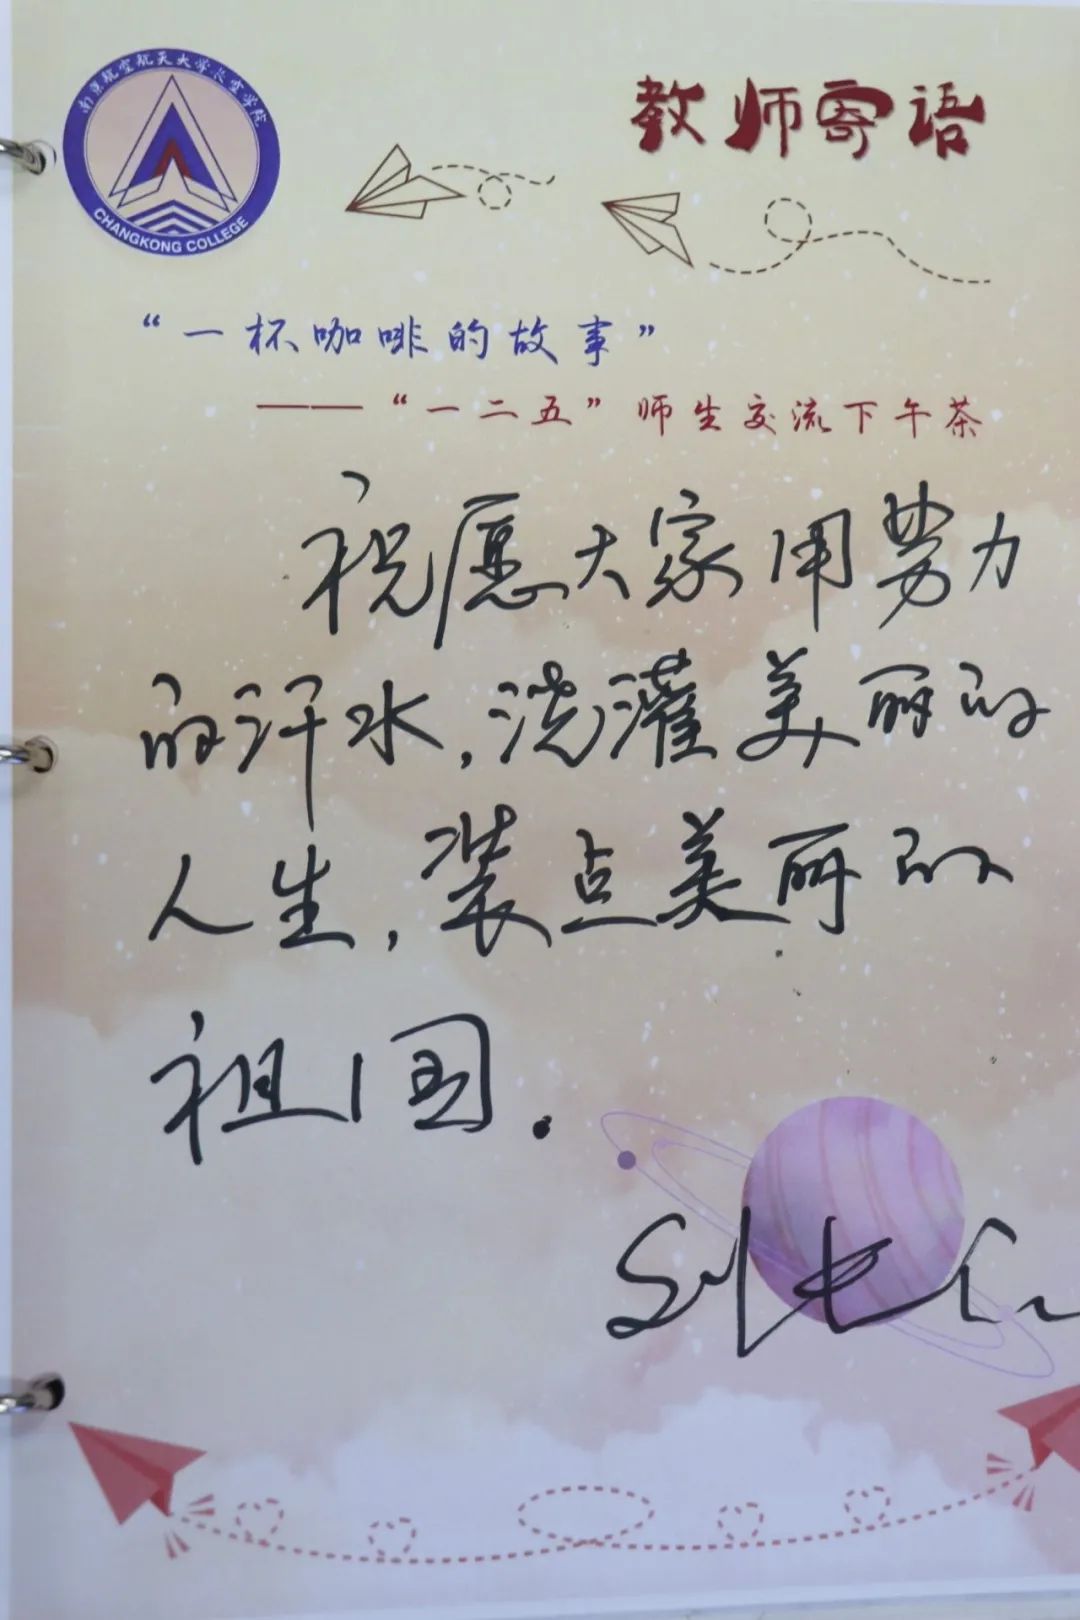 南京航空航天大学长空学院
CHANGKONG COLLEGE
教师寄语
“一杯咖啡的故事”
——“一二五”师生交流下午茶
祝愿大家用努力
的汗水,浇灌美丽的
人生,装点美丽的
祖国.